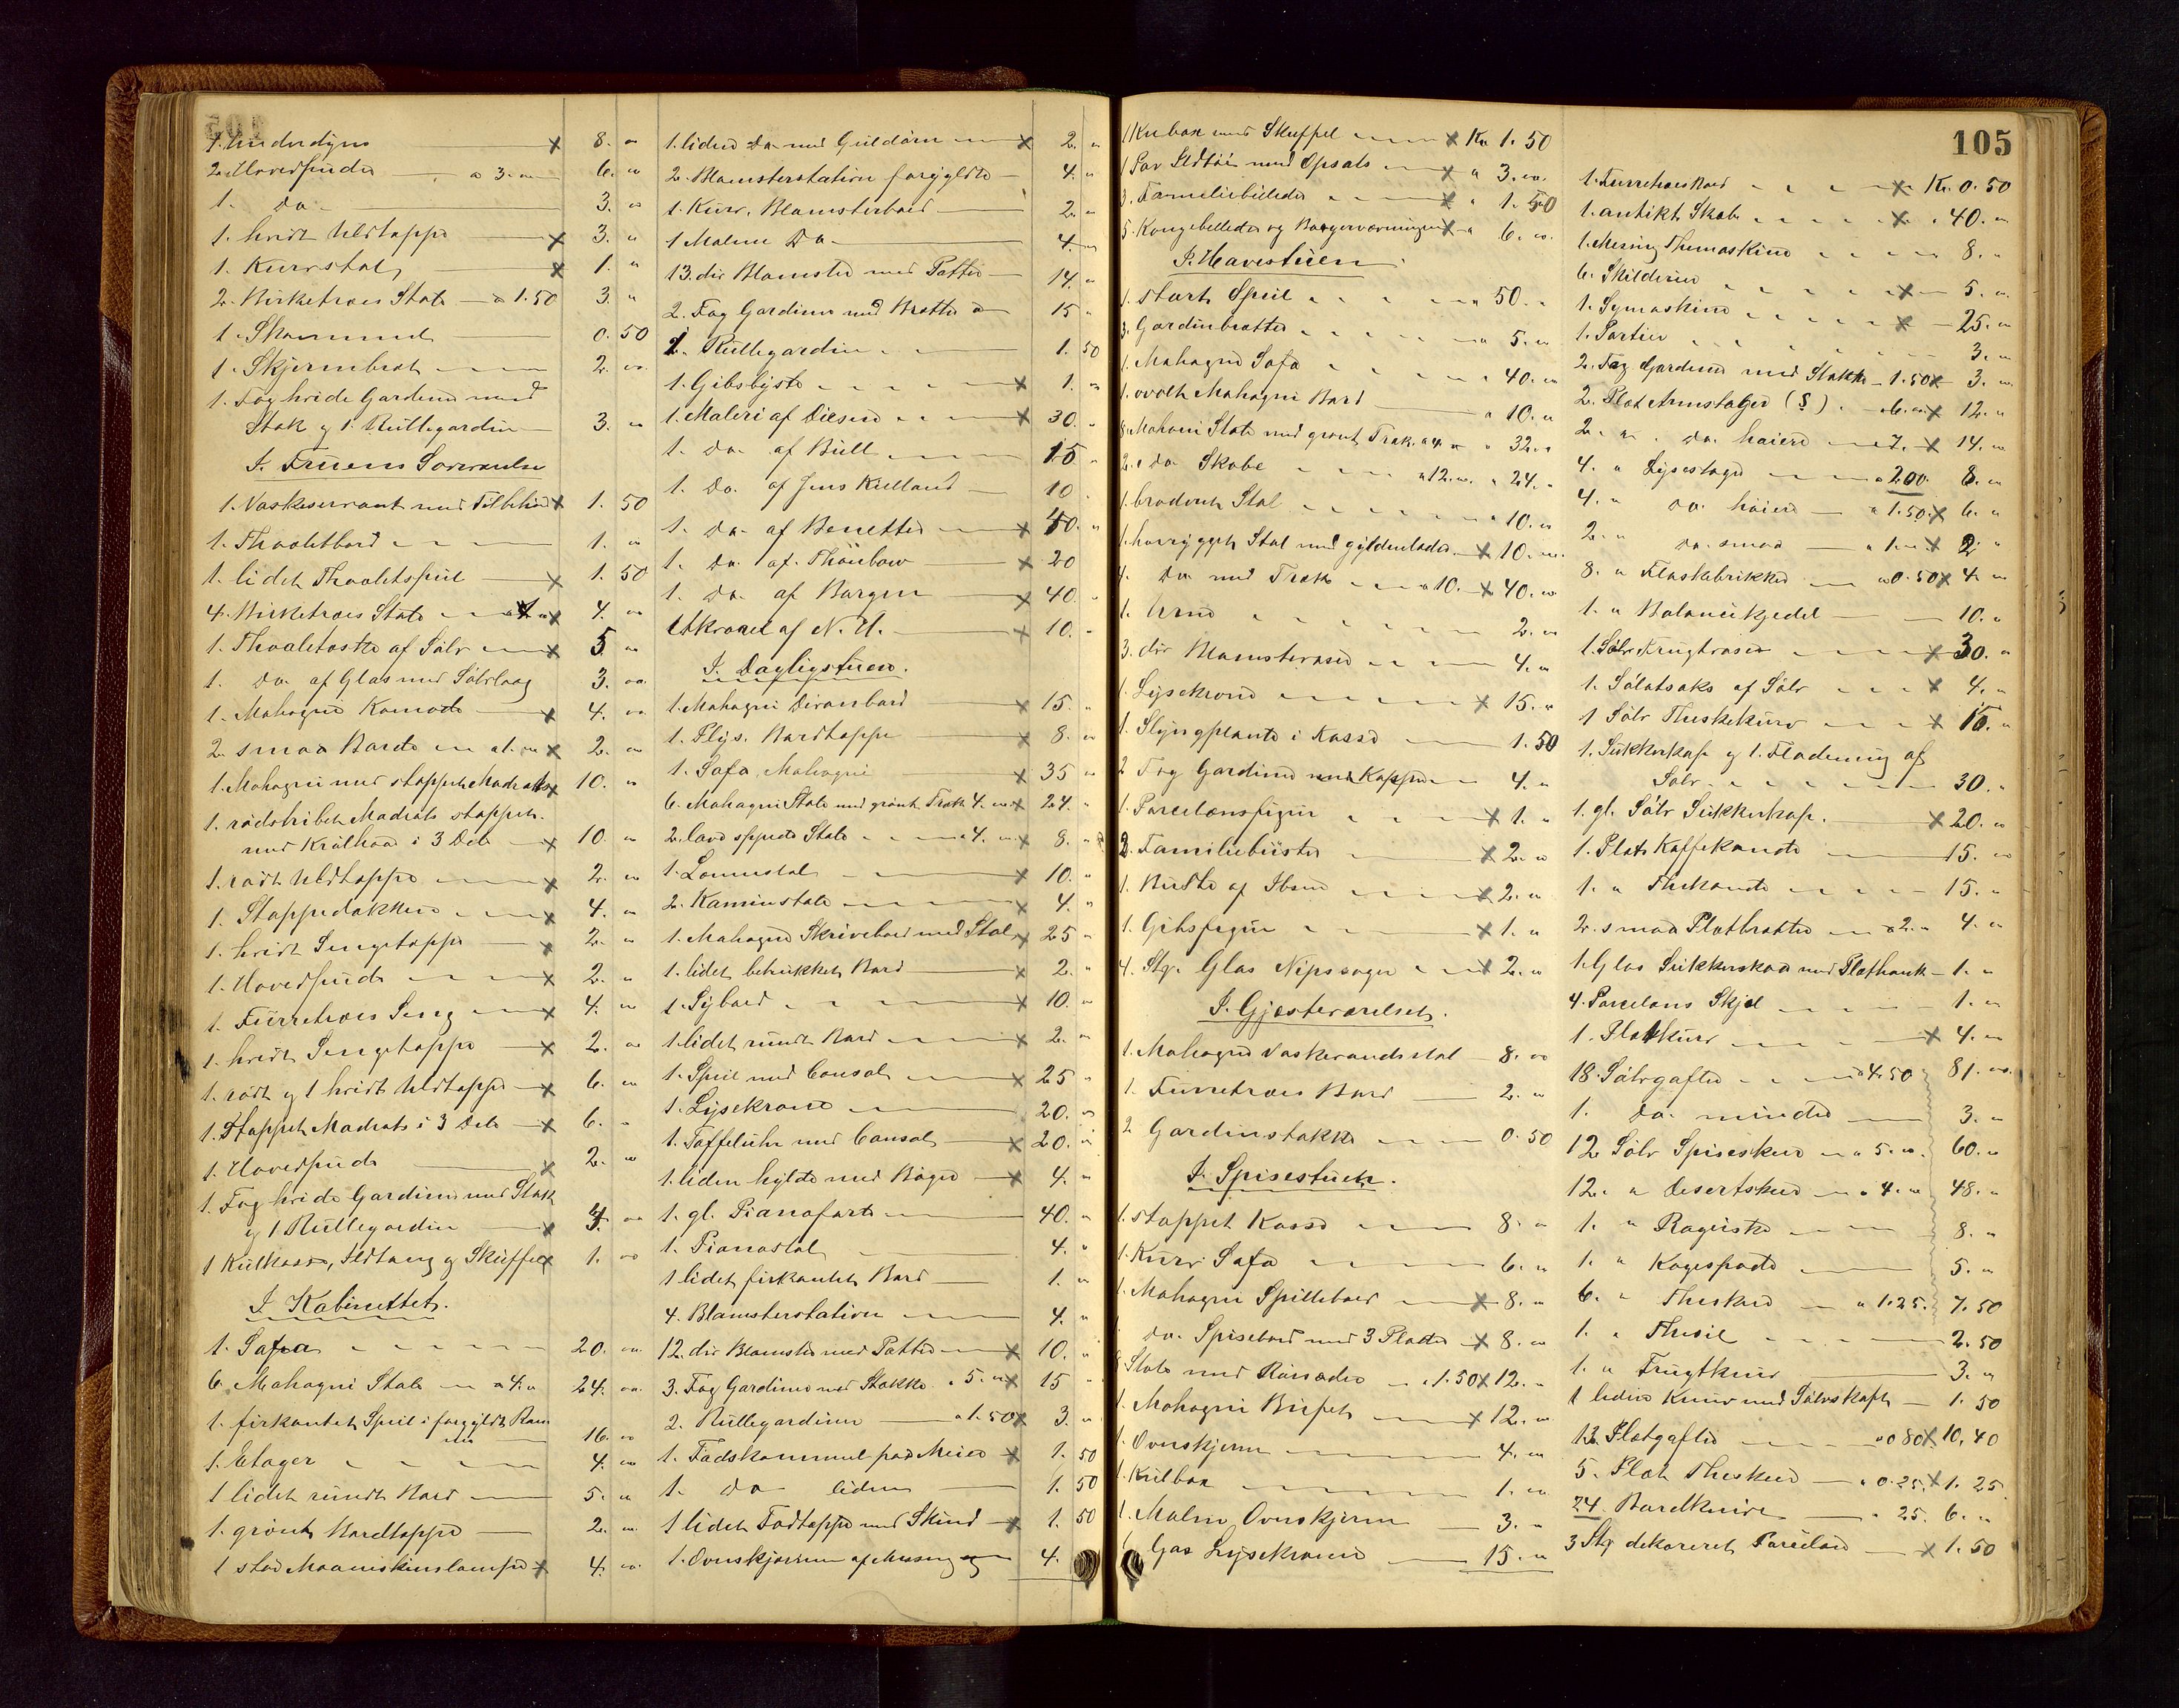 1. Underdyne x 8. "
2. Hovedpuder a 3. " 6. "
1. Do 3. "
1. hvidt Uldtæppe x 3. "
1. Kurvstol x 1. "
2. Birketræes Stole a 1.50 3. "
1. Skammel 0.50
1. Skjermbret 2. "
1. Fag hvide Gardiner med
Stok og 1 Rullegardin 3. "
I. Fruens Soveværelse
1. Vaskeservant med Tilbehør x 1.50
1. Thoaletbord 1. "
1. lidet Thoaletspeil x 1.50
4. Birketræes Stole a 1. " x 4. "
1. Thoaletæske af Sölv x 5 "
1. Do af Glas med Sölvlaag 3. "
1. Mahogni Komode x 4. "
2. smaa Borde a 1. " x 2. "
1. Mahogni med stoppet Madrats x 10. "
1. rødstribet Madrats stoppet
med Krølhaar i 3 Dele x 10. "
1. rødt Uldtæppe x 2. "
1. Stoppedækken x 4. "
1. hvidt Sengetæppe x 2. "
1. Hovedpude x 2. "
1. Furretræes Seng x 4. "
1. hvidt Sengetæppe x 2. "
1. rødt og 1 hvidt Uldtæppe x 6. "
1. Stoppet Madrats i 3 Dele x 6. "
1. Hovedpude x 2. "
1. Fag hvide Gardiner med Stok
og 1 Rullegardin x 4. "
1 Kulkasse, Ildtang og Skuffel x 1. "
I Kabinettet.
1. Sofa 20. "
6. Mahogni Stole a 4. " 24. "
1. firkantet Speil i forgyldt Ram
me 16. "
1. Etager 4. "
1 lidet rundt Bord 5. "
1. grønt Bordtæppe 2. "
1 stor Maaneskinslampe x 4. "
1. liden Do med Guldørn x 2. "
2. Blomsterstativer forgyldte 4. "
1. Kurv. Blomsterbord 2. "
1 Malm Do 4. "
13. div Blomster med Potter 14. "
2. Fag Gardiner med Brætter 15 "
1. Rullegardin 1.50
1. Gibsbyste x 1. "
1. Maleri af Diesen x 30. "
1. Do af Bull 15 "
1. Do. af Jens Kielland 10
1. Do af Benetter x 40. "
1. Do af x 20
1. Do af Borgen x 40. "
1 Akvarel af N. U. x 10. "
I. Dagligstuen.
1. Mahogni Divanbord x 15. "
1. Plys. Bordtæppe x 8. "
1. Sofa, Mahogni x 35 "
6. Mahogni Stole med grønt Træk 4. " x 24. "
2. lave Stole a 4. " x 8. "
1. Lænestol x 10. "
2. Kaminstole x 4. "
1. Mahogni Skrivebord med Stol x 25 "
1. lidet betrukket Bord x 2. "
1. Sybord x 10. "
1. lidet rundt Bord x 2. "
1. Speil med Consol x 25 "
1. Lysekrone 20. "
1. Taffeluhr med Consol x 20. "
1. liden hylde med Bøger x 4. "
1. gl. Pianoforte 40. "
1. Pianostol 4. "
1 lidet firkantet Bord 1. "
4. Blomsterstativer 4. "
12. div Blomster med Potter x 10. "
3. Fag Gardiner med Stokke a 5. " x 15 "
2. Rullegardiner a 1.50 x 3. "
1. Fodskammel paa Meier x 1.50
1. Do liden 1.50
1 lidet Fodtæppe med Skind x 1.50
1. Ovnskjærm af Messing 4.
1 Kulbox med Skuffel x Kr 1.50
1 Par Ildtøi med Opsats x " 3. "
3. Familiebilleder x " 1.50
5. Kongebilleder og Borgervæbningen x " 6. "
I. Havestuen.
1. stort Speil " 50. "
3. Gardinbrætter " 5. "
1. Mahogni Sofa " 40. "
1. ovalt Mahogni Bord " 10. "
8. Mahogni Stole med grønt Træk. a 4 " " 32. "
2. " Do Skabe a 12. " " 24. "
1. broderet Stol " 10. "
1. høirygget Stol med gyldenlæder x 10. "
4. Do med Træk a 10. x 40. "
1. Urne 2. "
3. div Blomstervaser 4. "
1. Lysekrone x 15. "
1. Slyngplante i Kasse 1.50
2 Fag Gardiner med Kapper 4. "
1. Porcelænsfigur x 1. "
2. Familiebüster x 2. "
1. Büste af Ibsen x 2. "
1. Gibsfigur x 1. "
4. Stg. Glas Nipssager x 2. "
I. Gjæsteværelset.
1. Mahogni Vaskevandsstol 8. "
1. Furretræes Bord 2. "
2 Gardinstokke 0.50
I. Spisestuen.
1. stoppet Kasse 8. "
1. Kurv Sofa 6. "
1. Mahogni Spillebord x 8. "
Do. Spisebord med 3 Plader x 8. "
8 Stole med Rørsæder a 1.50 x 12. "
1. Mahogni Büfet x 12. "
1. Ovnskjerm 4. "
1. Kulbox 1. "
1. Malm Ovnskjerm 3. "
1. Gas Lysekrone 15. "
105
1. Furretræes Bord x Kr. 0.50
1. antikt Skab x " 40. "
1. Messing Themaskine 8. "
6. Skilderier x 5. "
1. Symaskine x 25. "
1. Portier 3. "
2. Fag Gardiner med Stokke 1.50 x 3. "
2. Plet Armstager (S) a 6. " x 12. "
2. " Do høiere a 7. x 14. "
4. " Lysestager a 2.00 8. "
4. " Do høiere a 1.50 x 6. "
2. " Do smaa a 1. " x 2. "
8. " Flaskebrikker a 0.50 x 4. "
1. " Balancekjedel 10. "
1. Sølv Frugtvase x 30. "
1. Salatsaks af Sölv x 4. "
1 Sölv Theskekurv x 15. "
1. Sukkerkop og 1. Flødemug af
Sölv 30. "
1. gl. Sölv Sukkerkop. x 20. "
1. Plet Kaffekande 15. "
1. " Thekande 15. "
2. smaa Pletbrætter a 2. " 4. "
1. Glas Sukkerskaal med Plethank 1. "
4. Porcelæns Skjæl 1. "
1. Pletkurv x 4. "
18. Sölvgafler a 4.50 81. "
1. Do mindre 3. "
12 Sölv Spiseskeer a 5. " 60. "
12. " Desertskeer a 4. " 48. "
1. " Raguske 8. "
1. " Kagespade 5. "
6. " Theskeer a 1.25. 7.50
1. " Thesil 2.50
1. " Frugtkniv 3. "
1 liden Kniv med Sølvskaft 1.50
13. Pletgafler a 0.80 x 10,40
5. Plet Theskeer a 0.25. x 1.25
24. Bordknive a 25. 6. "
3 Stg dekoreret Porcelæn x 1.50